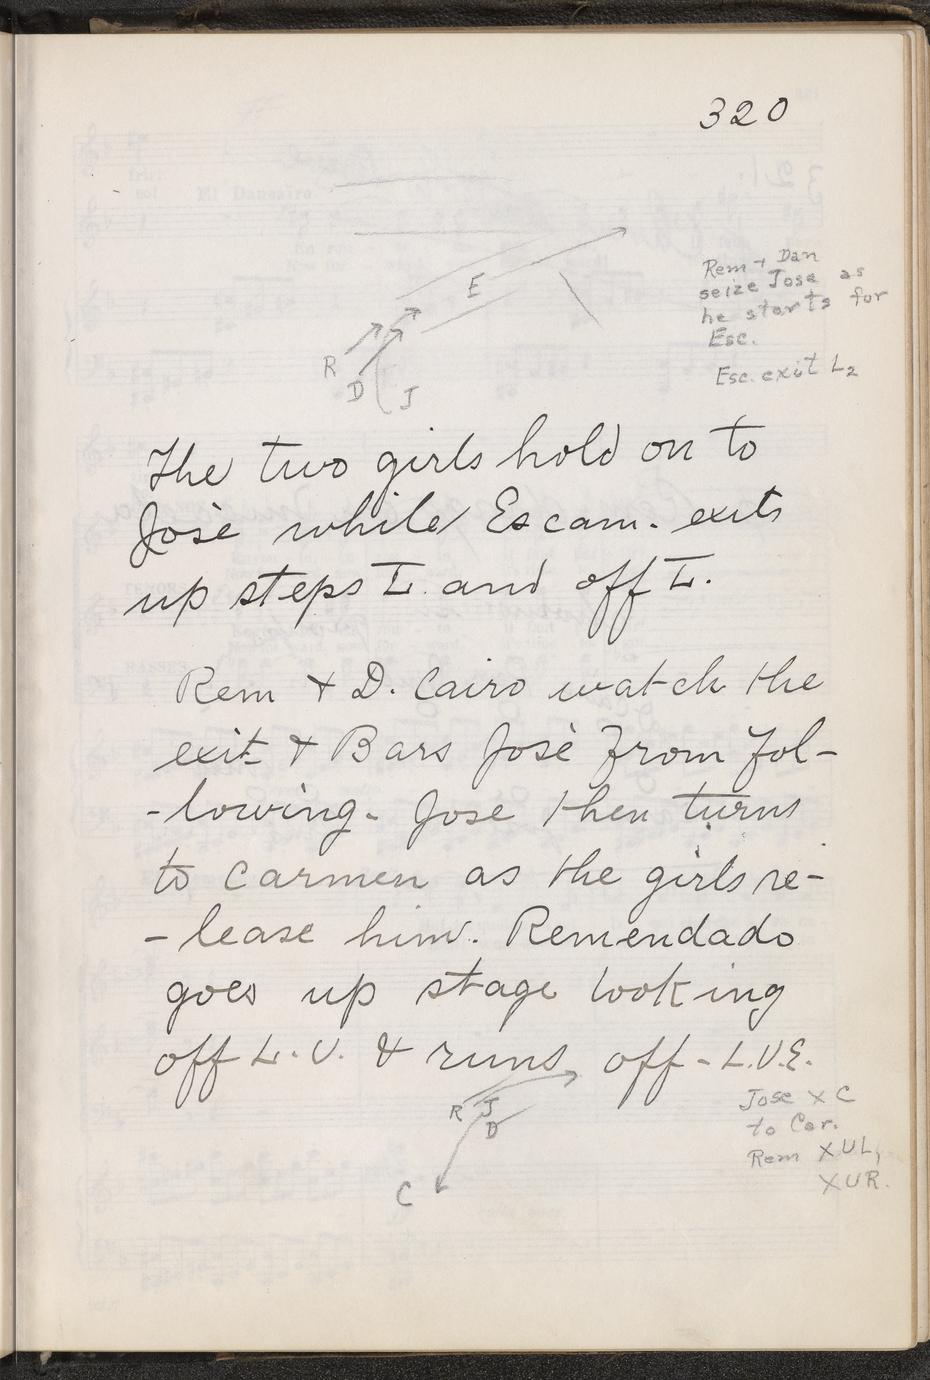 320
Rem + Dan
seize Jose as
he starts for
Esc.
Esc. exit L2
E
R
D
J
The two girls hold on to
José while Escam. exits
up steps L. and off L.
Rem & D. Cairo watch the
exit & Bars José from fol-
-lowing. Jose then turns
to Carmen as the girls re-
-lease him. Remendado
goes up stage looking
off L.U. & runs off - L.U.E.
R J
D
C
Jose X C
to Car.
Rem XUL,
XUR.